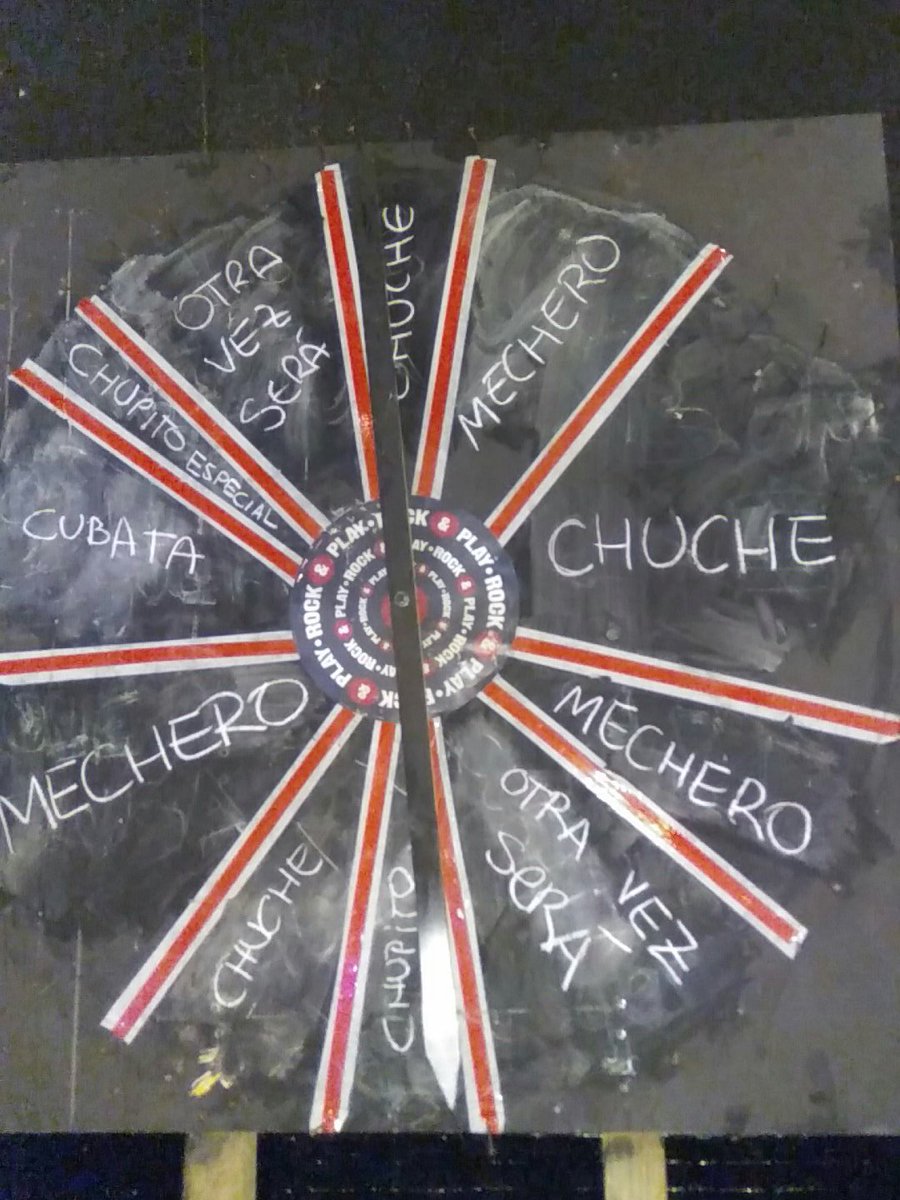 CHUCHE
MECHERO
CHUCHE
MECHERO
OTRA
VEZ
SERÁ
CHUPITO
CHUCHE
MECHERO
CUBATA
CHUPITO ESPECIAL
OTRA
VEZ
SERÁ
ROCK & PLAY • ROCK & PLAY • ROCK & PLAY • ROCK & PLAY •